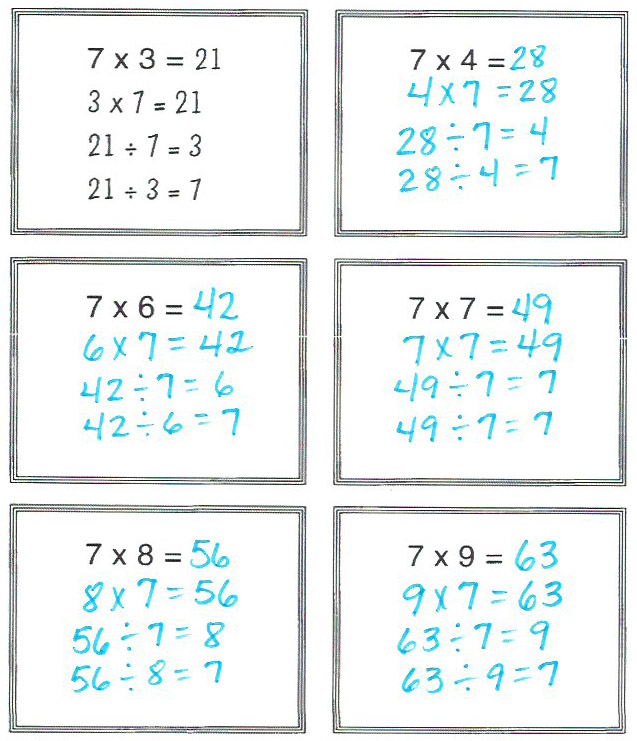 7 x 3 = 21
3 x 7 = 21
21 ÷ 7 = 3
21 ÷ 3 = 7
7 x 4 = 28
4 x 7 = 28
28 ÷ 7 = 4
28 ÷ 4 = 7
7 x 6 = 42
6 x 7 = 42
42 ÷ 7 = 6
42 ÷ 6 = 7
7 x 7 = 49
7 x 7 = 49
49 ÷ 7 = 7
49 ÷ 7 = 7
7 x 8 = 56
8 x 7 = 56
56 ÷ 7 = 8
56 ÷ 8 = 7
7 x 9 = 63
9 x 7 = 63
63 ÷ 7 = 9
63 ÷ 9 = 7